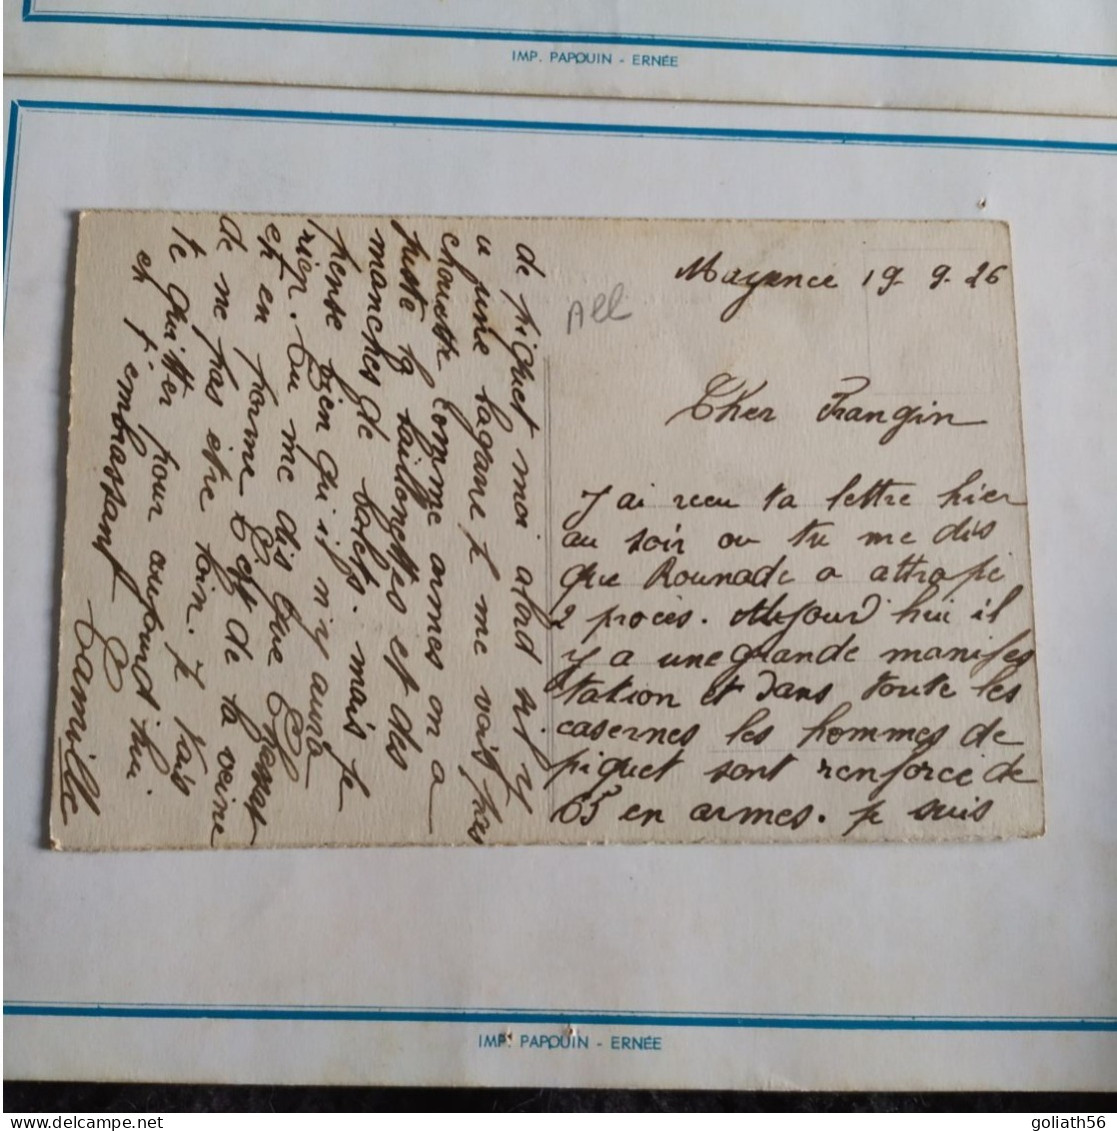 IMP. PAPOUIN - ERNÉE
Mayence 19. 9. 26
All
Cher Frangin
J'ai recu ta lettre hier
au soir ou tu me dis
que Rounade a attrapé
2 procès. Aujourd'hui il
y a une grande manifes
tation et dans toute les
casernes les hommes de
piquet sont renforcé de
65 en armes. je suis
de piquet moi alord il y
a une bagare je me vais pas
chouette comme armes on a
juste la baïonettes et des
manches de balets. mais je
pense bien qu'il n'y aura
rien. Tu me dis que
et en forme c'est de la veine
de ne pas être loin. Je vais
te quitter pour aujourd'hui
et t'embrassant
Camille
IMP. PAPOUIN - ERNÉE
goliath56